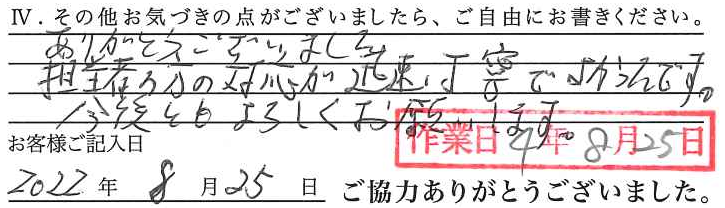 Ⅳ．その他お気づきの点がございましたら、ご自由にお書きください。
ありがとうございました。
担当者の方の対応が迅速丁寧でよかったです。
今後ともよろしくお願いします。
お客様ご記入日
作業日 4年 8月25日
2022 年 8 月 25 日 ご協力ありがとうございました。